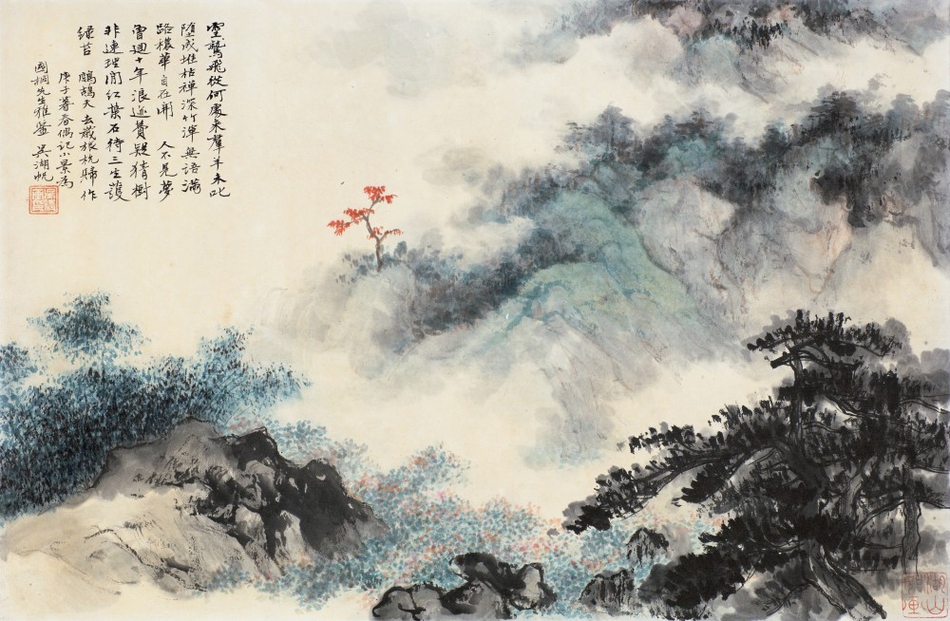 靈鷲飛從何處來羣羊未叱
墮成堆枯禪深竹渾無語滿
路穠華自在開 人不見夢
曾迴十年浪迹費疑猜樹
非連理紅葉石待三生護
綠苔 鷓鴣天 去歲旅杭歸作
庚子暮春偶記小景爲
國桐先生雅鑒 吳湖帆